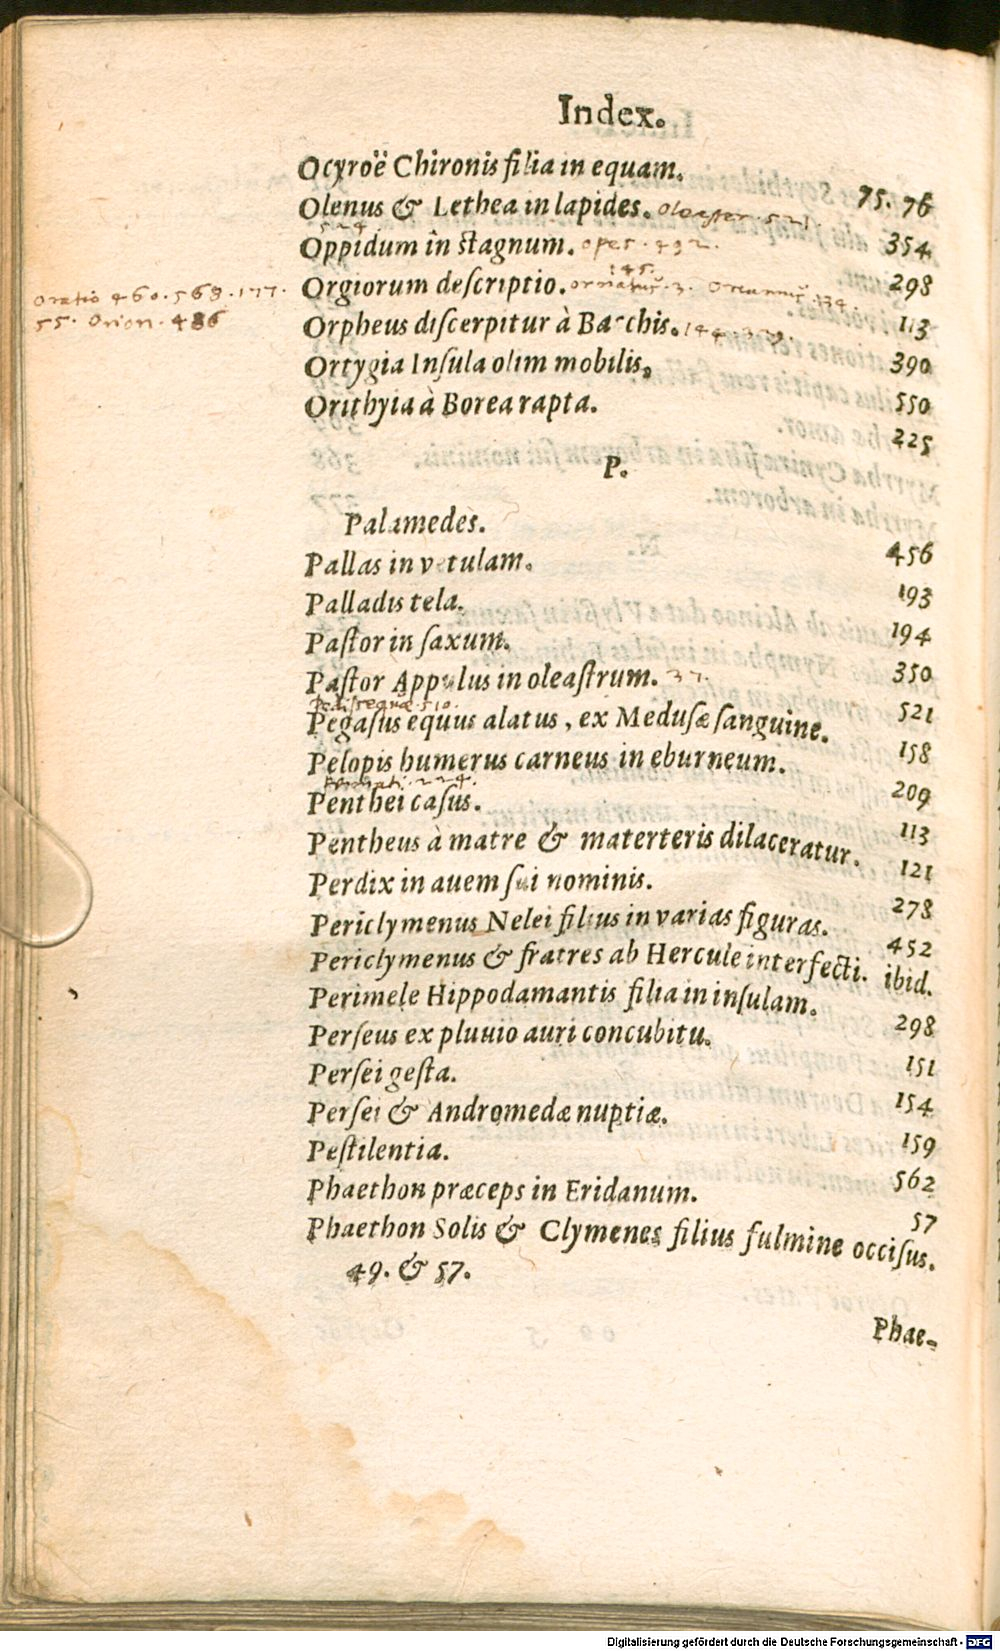 Index.
Ocyroë Chironis filia in equam. 75. 76
Olenus & Lethea in lapides. oleaster. 521. 354
524
Oppidum in stagnum. opes. 492. 298
145.
Orgiorum descriptio. ornatus. 3. 113
Oratio 460. 568. 177.
55. Orion. 486
Orpheus discerpitur à Bacchis. 390
Ortygia Insula olim mobilis. 550
Orithyia à Borea rapta. 225
P.
Palamedes. 456
Pallas in vetulam. 193
Palladis tela. 194
Paſtor in ſaxum. 350
Paſtor Appulus in oleaſtrum. 37. 521
pedissequae. 510.
Pegaſus equus alatus, ex Meduſæ ſanguine. 158
Pelopis humerus carneus in eburneum. 209
224.
Penthei caſus. 113
Pentheus à matre & materteris dilaceratur. 121
Perdix in auem ſui nominis. 278
Periclymenus Nelei filius in varias figuras. 452
Periclymenus & fratres ab Hercule interfecti. ibid.
Perimele Hippodamantis filia in inſulam. 298
Perſeus ex pluuio auri concubitu. 151
Perſei geſta. 154
Perſei & Andromedæ nuptiæ. 159
Peſtilentia. 562
Phaethon præceps in Eridanum. 57
Phaethon Solis & Clymenes filius fulmine occiſus.
49. & 57.
Phae-
Digitalisierung gefördert durch die Deutsche Forschungsgemeinschaft - DFG